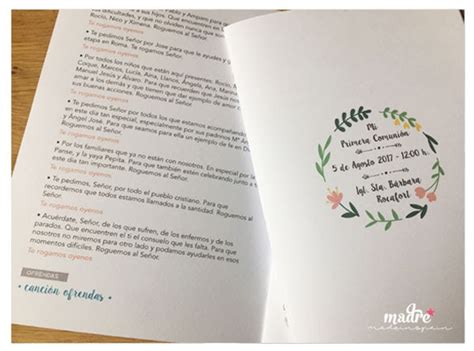 Pablo y Amparo para
a sus hijos. Que encuentren en ti
dificultades, y que no olviden nunca que son
Rocío, Nico y Ximena. Roguemos al Señor.
Te rogamos oyenos
• Te pedimos Señor por Jose para que le ayudes y g
etapa en Roma. Te rogamos Señor.
Te rogamos oyenos
• Por todos los niños que están aquí presentes: Rocío, M
Coque, Marcos, Lucía, Aina, Llanos, Ángela, Ana, Marta
Manuel Jesús y Álvaro. Para que crezcan
amor a los demás y que tengan dar ejemplo de amor
sus buenas acciones. Roguemos al Señor.
Te rogamos oyenos
• Te pedimos Señor por todos los que estamos acompañando
en este día tan especial, por sus padrinos especialmente Mª Án
y Ángel José. Para que seamos para ella un ejemplo de fe en Di
Te rogamos oyenos
• Por los familiares que ya no están con nosotros. En especial por
Panse, y la yaya Pepita. Para que también estén celebrando junto a
este día tan especial. Roguemos al Señor.
Te rogamos oyenos
• Te pedimos, Señor, por todo el pueblo cristiano. Para que
recordemos que todos estamos llamados a la santidad. Roguemos
al Señor.
Te rogamos oyenos
• Acuérdate, Señor, de los que sufren, de los enfermos y de los
parados. Que encuentren en ti el consuelo que les falta. Para que
nosotros no miremos para otro lado y podamos ayudarles en esos
momentos difíciles. Roguemos al Señor.
Te rogamos oyenos
OFRENDAS
• canción ofrendas •
Mi
Primera Comunión
5 de Agosto 2017 - 12:00 h.
Igl. Sta. Bárbara
Rocafort
madre
madeinspain